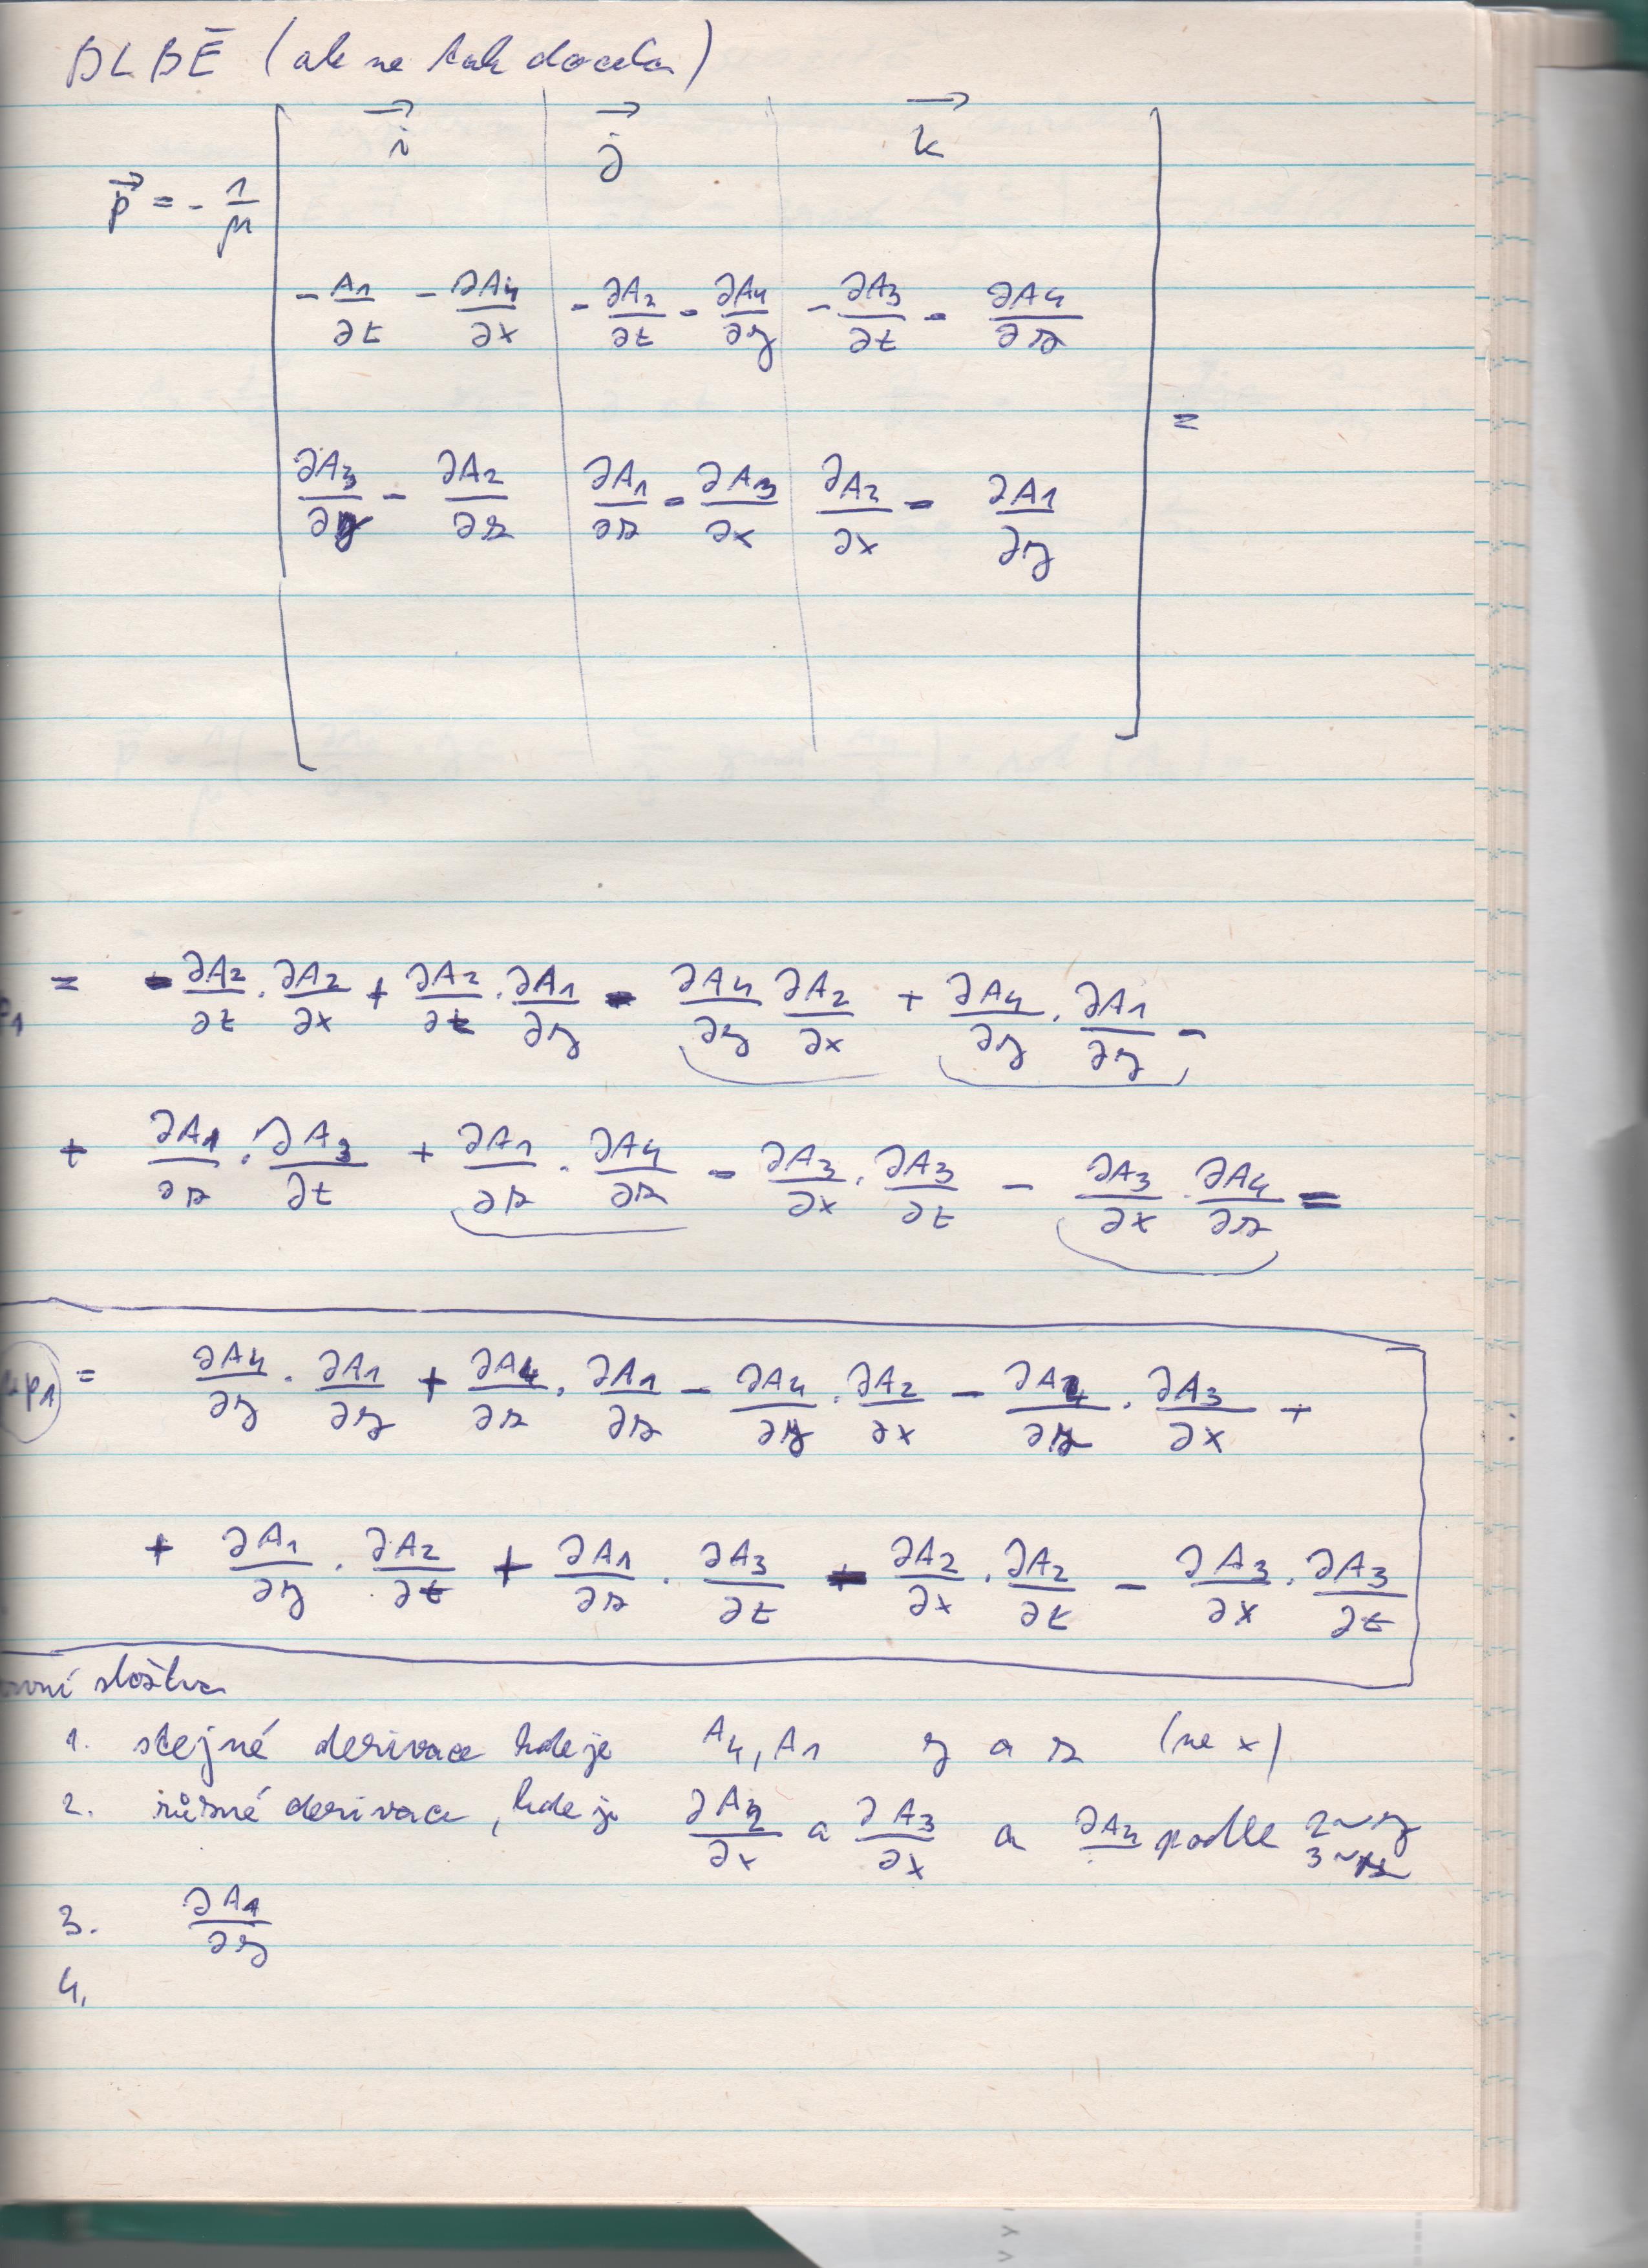 BLBĚ (ale ne tak docela)
i⃗ j⃗ k⃗
p⃗ = - 1/μ
- A₁/∂t - ∂A₄/∂x - ∂A₂/∂t - ∂A₄/∂y - ∂A₃/∂t - ∂A₄/∂z
∂A₃/∂y - ∂A₂/∂z ∂A₁/∂z - ∂A₃/∂x ∂A₂/∂x - ∂A₁/∂y =
p₁ = - ∂A₂/∂t . ∂A₂/∂x + ∂A₂/∂t . ∂A₁/∂y - ∂A₄/∂y ∂A₂/∂x + ∂A₄/∂y . ∂A₁/∂y -
+ ∂A₁/∂z . ∂A₃/∂t + ∂A₁/∂z . ∂A₄/∂z - ∂A₃/∂x . ∂A₃/∂t - ∂A₃/∂x . ∂A₄/∂z =
p₁ = ∂A₄/∂y . ∂A₁/∂y + ∂A₄/∂z . ∂A₁/∂z - ∂A₄/∂y . ∂A₂/∂x - ∂A₄/∂z . ∂A₃/∂x +
+ ∂A₁/∂y . ∂A₂/∂t + ∂A₁/∂z . ∂A₃/∂t - ∂A₂/∂x . ∂A₂/∂t - ∂A₃/∂x . ∂A₃/∂t
složka
1. stejné derivace kde je A₄, A₁ y a z (ne x)
2. různé derivace, kde je ∂A₂/∂x a ∂A₃/∂x a ∂A₄ podle 2~y 3~z
3. ∂A₁/∂y
4.